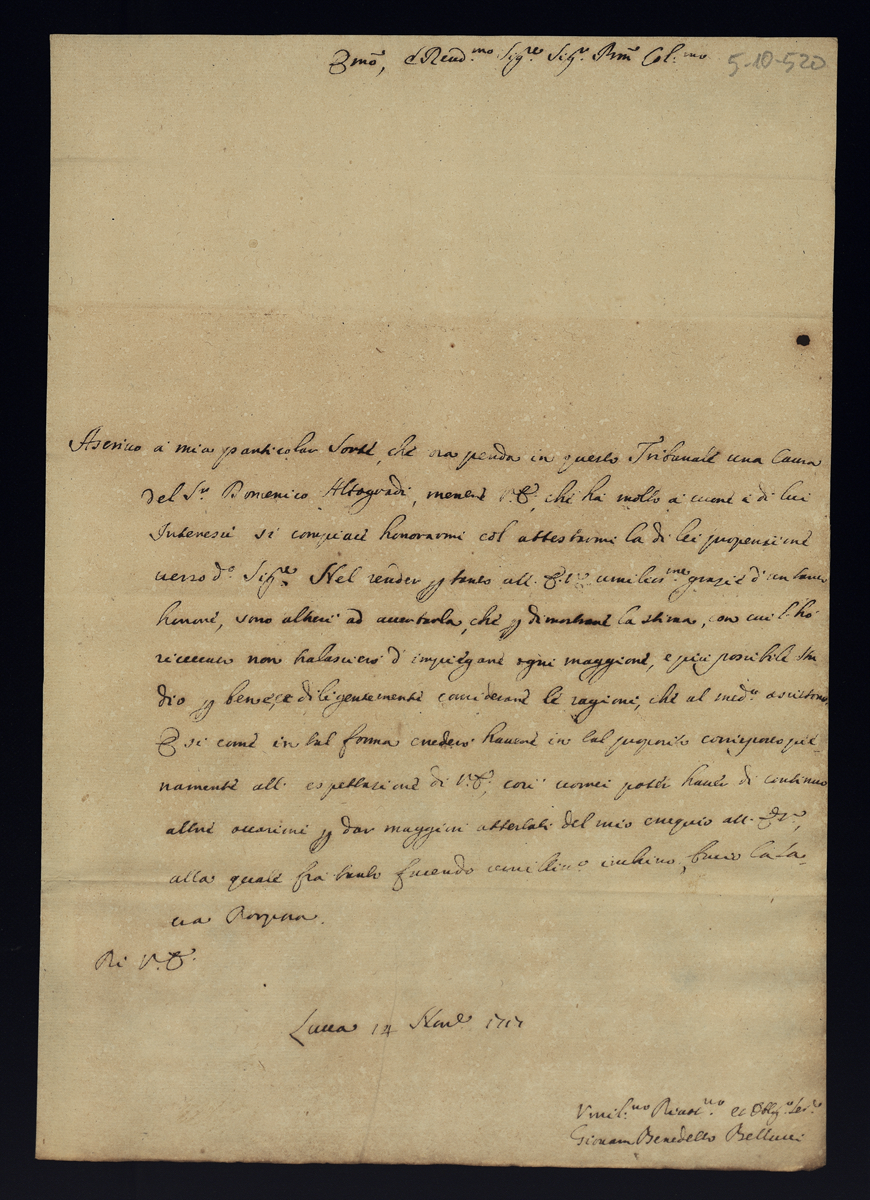 Emō, e Reud.mo Sig.re Sig.r Prōn Col.mo
5-10-520
Ascrivo a mia particolar sorte, che ora penda in questo Tribunale una Causa
del S.r Domenico Altogradi, mentre V.E., che ha molto a cuore i di lui
Interessi si compiace honorarmi col attestarmi la di lei propensione
verso d.o Sig.re. Nel render p tanto all. E.V. umiliss.me grazie d'un tanto
honore, sono altresi ad accertarla, che p dimostrare la stima, con cui l'hò
ricevuto non tralascierò d'impiegare ogni maggiore, e più possibile stu
dio p bene, e diligentemente considerare le ragioni, che al med.o assistono,
E si come in tal forma crederò havere in tal proposito corrisposto pie-
namente all. espettazione di V.E., così vorrei poter haver di continuo
altre occasioni p dar maggiori attestati del mio ossequio all. E.V.,
alla quale fra tanto facendo umiliss.o inchino, bacio la Sa-
cra Porpora.
Di V.E.
Lucca 14 1717
Umil.mo Divot.mo et Obblig.o Ser.e
Giovan Benedetto Bellucci